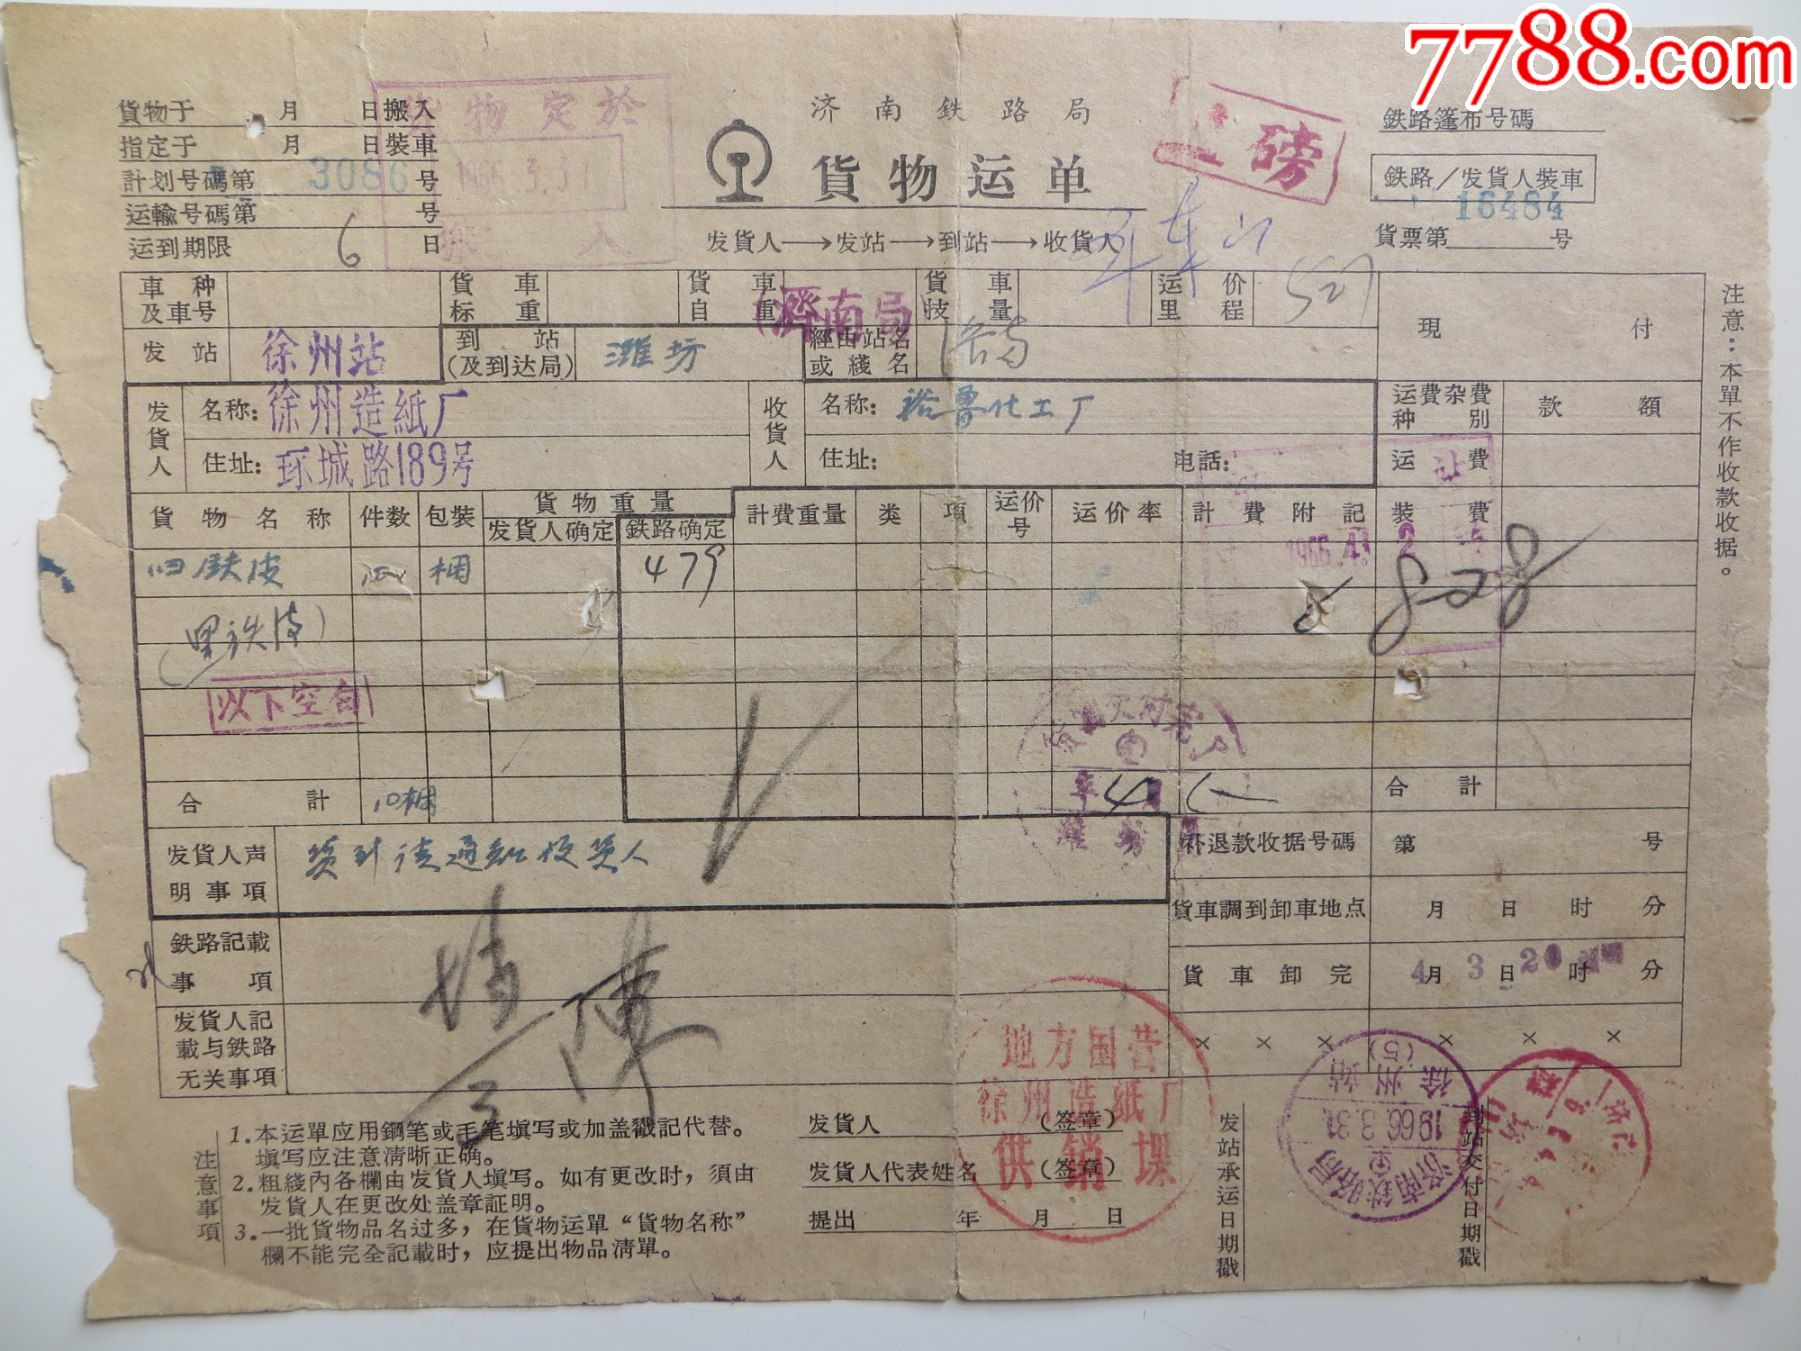 7788.com
貨物于 月 日搬入
指定于 月 日装車
計划号碼第 3086 号
运輸号碼第 号
运到期限 6 日
貨物定於
1966.3.31
搬入
济南鉄路局
貨物运单
发貨人→发站→到站→收貨人
磅
鉄路篷布号碼
鉄路/发貨人装車
16484
貨票第 号
車种及車号
貨車标重
貨車自重
貨車技量
运价里程 507
現付
发站 徐州站
到站(及到达局) 潍坊
濟南局
經由站名或綫名
发貨人
名称:徐州造紙厂
住址:环城路189号
收貨人
名称:裕鲁化工厂
住址: 电話:
运費杂費种別
款額
运費
貨物名称 件数 包装 貨物重量
发貨人确定 鉄路确定
計費重量 类項 运价号 运价率 計費附記 装費
旧鉄皮 捆 479
(黑铁皮)
828
以下空白
合計 10捆
合計
发貨人声明事項
货到请通知收货人
补退款收据号碼 第 号
貨車調到卸車地点 月 日 时 分
鉄路記載事項
貨車卸完 4月3日20时 分
发貨人記載与鉄路无关事項
× × × × × ×
注意事項
1.本运單应用鋼笔或毛笔填写或加盖戳記代替。
填写应注意清晰正确。
2.粗綫內各欄由发貨人填写。如有更改时,須由
发貨人在更改处盖章証明。
3.一批貨物品名过多,在貨物运單“貨物名称”
欄不能完全記載时,应提出物品清單。
发貨人 (签章)
发貨人代表姓名 (签章)
提出 年 月 日
地方国营
徐州造紙厂
供銷課
发站承运日期戳
济南鉄路局
1966.3.31
徐州站
(5)
到站交付日期戳
注意:本單不作收款收据。